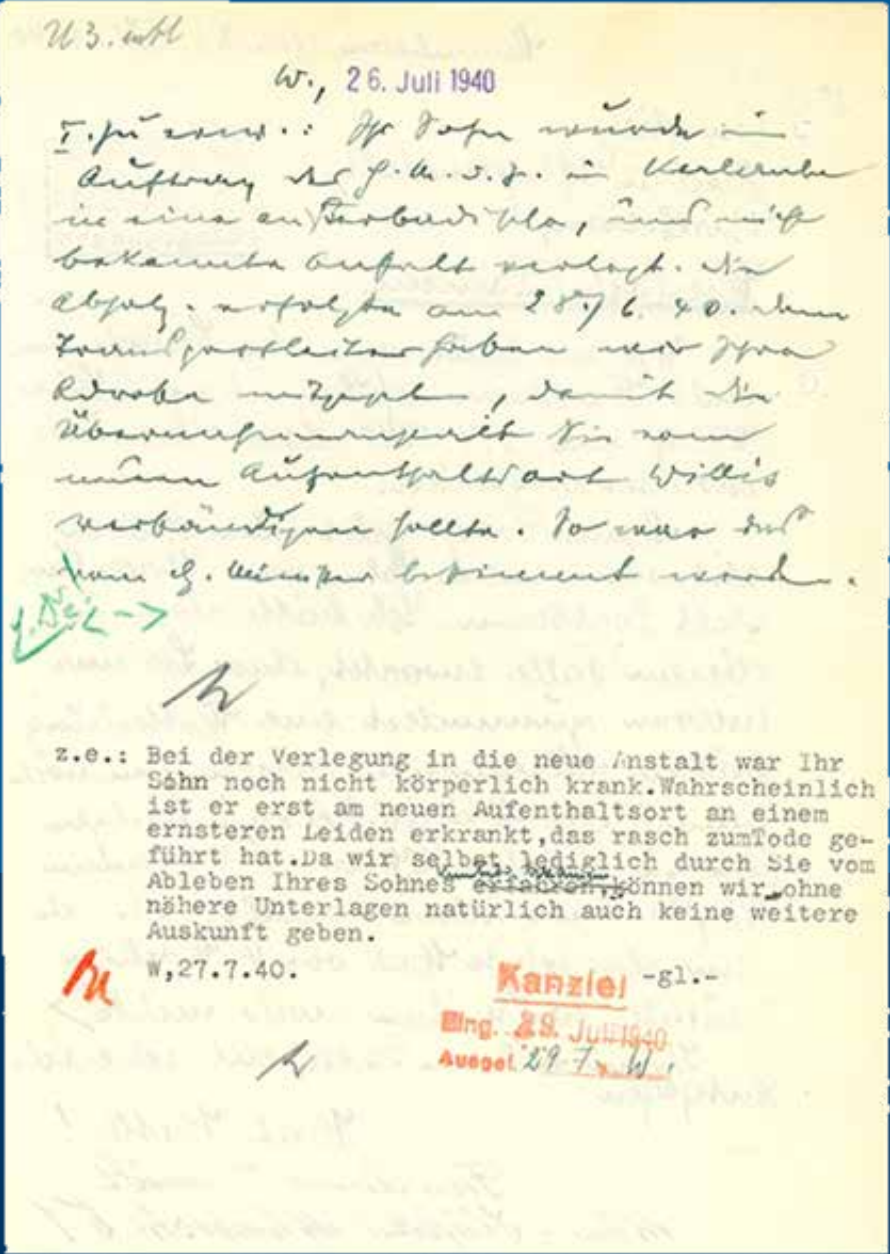 W., 26. Juli 1940
I. zu erw.: Ihr Sohn wurde im
Auftrag des H. M. d. J. in Karlsruhe
in eine außerbadische, uns nicht
bekannte Anstalt verlegt. Die
Abholg. erfolgte am 28./6.40. Dem
Transportleiter haben wir Ihre
Adresse, damit die
Sie vom
neuen Aufenthaltsort Willis
verständigen sollte. So war das
vom H. Minister bestimmt worden.
z.e.: Bei der Verlegung in die neue Anstalt war Ihr
Sohn noch nicht körperlich krank.Wahrscheinlich
ist er erst am neuen Aufenthaltsort an einem
ernsteren Leiden erkrankt,das rasch zumTode ge-
führt hat.Da wir selbst lediglich durch Sie vom
Ableben Ihres Sohnes können wir ohne
nähere Unterlagen natürlich auch keine weitere
Auskunft geben.
W,27.7.40. -gl.-
Kanzlei
Eing. 29. Juli 1940
Ausgef. 29.7. W.